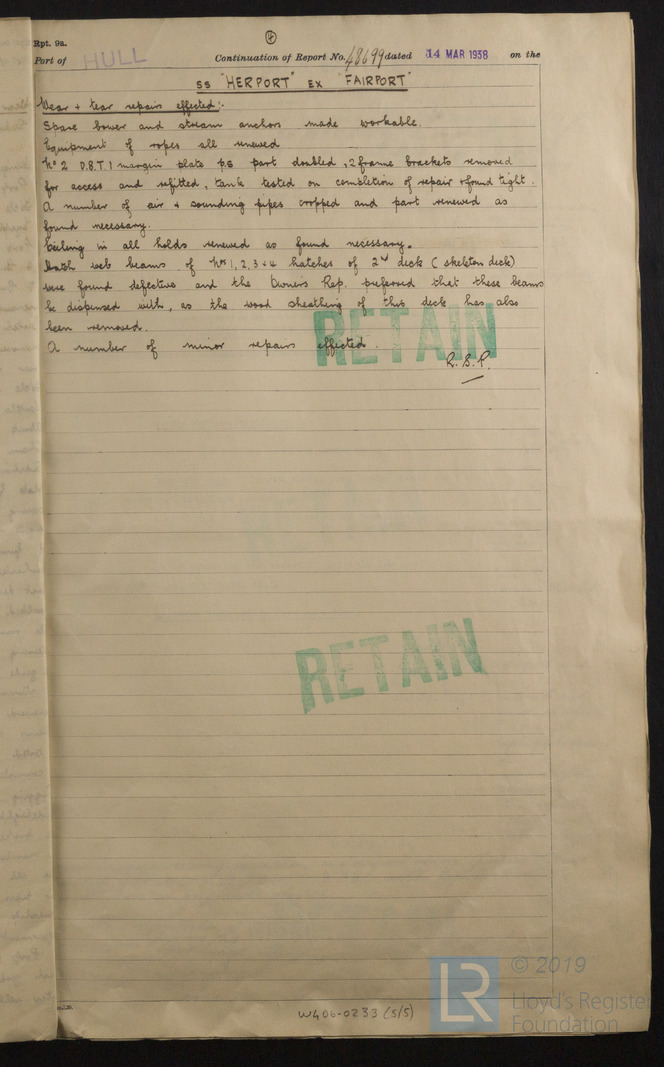 4
Rpt. 9a.
Port of HULL Continuation of Report No. 48699 dated 14 MAR 1938 on the
SS "HERPORT" EX "FAIRPORT"
Wear + tear repairs effected:-
Spare bower and stream anchors made workable.
Equipment of ropes all renewed
No 2 D.B.T 1 margin plate p.s part doubled, 2 frame brackets removed
for access and refitted, tank tested on completion of repair + found tight.
A number of air + sounding pipes cropped and part renewed as
found necessary.
Ceiling in all holds renewed as found necessary.
Hatch web beams of Nos 1, 2, 3 + 4 hatches of 2nd deck (skeleton deck)
were found defective and the Owners Rep. preferred that these beams
be dispensed with, as the wood sheathing of this deck has also
been removed.
A number of minor repairs effected.
R.B.P.
RETAIN
RETAIN
W406-0233 (5/5)
LR
© 2019
Lloyd's Register
Foundation